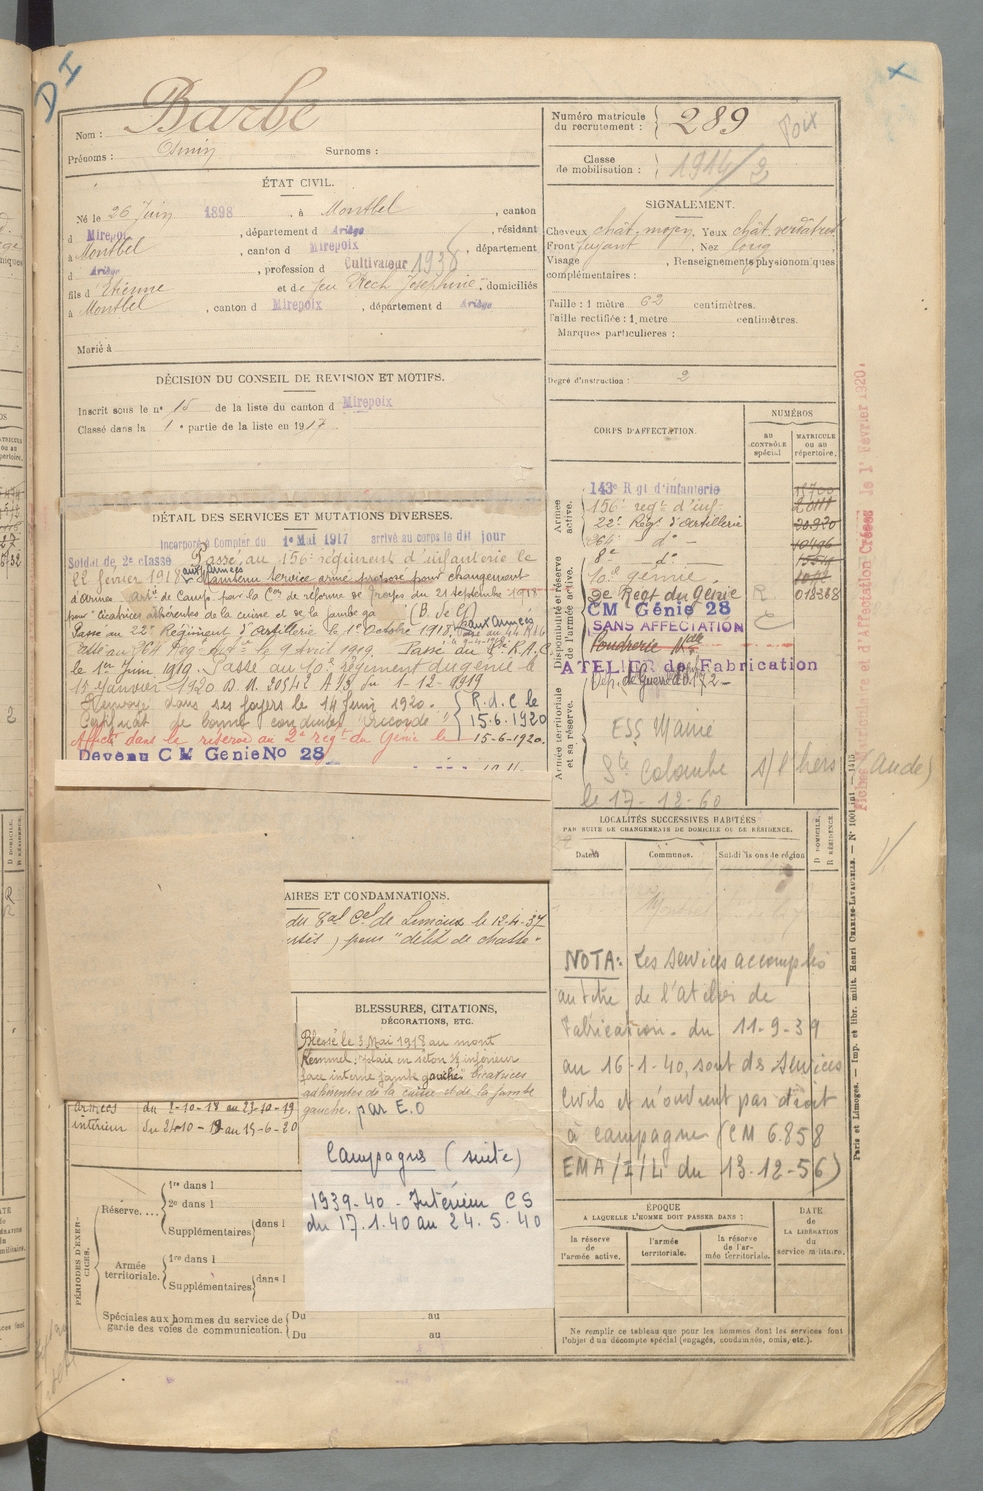 DI
Nom : Barbe
Prénoms :
Surnoms :
ÉTAT CIVIL.
Né le 26 Juin 1898, à Montbel, canton
d Mirepoix, département d Ariège, résidant
à Montbel, canton d Mirepoix, département
d Ariège, profession d Cultivateur
fils d Etienne et de feu Rech Josephine, domiciliés
à Montbel, canton d Mirepoix, département d Ariège
Marié à
DÉCISION DU CONSEIL DE REVISION ET MOTIFS.
Inscrit sous le n° 15 de la liste du canton d Mirepoix
Classé dans la 1e partie de la liste en 1917.
DÉTAIL DES SERVICES ET MUTATIONS DIVERSES.
Incorporé à Compter du 1e Mai 1917 arrivé au corps le dit jour
Soldat de 2e classe Passé au 156e régiment d'infanterie le
22 février 1918 aux Armées Maintenu service armé proposé pour changement
d'Armes par la Con de réforme du 21 septembre 1918
pour "cicatrices adhérentes de la cuisse et de la jambe ga (B. de G)
Passé au 22e Régiment d'Artillerie le 1e Octobre 1918, aux Armées
Passé au 264 Reg le 9 Avril 1919. Passé au 8e R.A.C.
le 1er Juin 1919. Passé au 10e régiment du génie le
15 Janvier 1920 D.M. 20542 A/3 du 1-12-1919
Renvoyé dans ses foyers le 14 Juin 1920.
Certificat de bonne conduite "accordé" R.d.C le 15.6.1920
Affecté dans la réserve au 2e regt du Génie le 15-6-1920.
Devenu CM Genie No 28
AIRES ET CONDAMNATIONS.
du Bal Cel de Limoux le 12-4-37
) pour "délit de chasse"
BLESSURES, CITATIONS,
DÉCORATIONS, ETC.
Blessé le 3 Mai 1918 au mont
Kemmel; "plaie en séton 1/3 inférieur
face interne jambe gauche" Cicatrices
adhérentes de la cuisse et de la jambe
gauche. par E.O
Armées du 2-10-18 au 23-10-19
intérieur du 24-10-19 au 15-6-20
Campagnes (suite)
1939-40 - Intérieur CS
du 17.1.40 au 24.5.40
PÉRIODES D'EXERCICES.
Réserve....
1re dans l
2e dans l
Supplémentaires dans l
Armée territoriale.
1re dans l
Supplémentaires dans l
Spéciales aux hommes du service de
garde des voies de communication.
Du au
Du au
Numéro matricule du recrutement : 289 Foix
Classe de mobilisation : 1914/2
SIGNALEMENT.
Cheveux chât. moyen Yeux chât. verdâtre
Front fuyant, Nez long
Visage, Renseignements physionomiques
complémentaires :
Taille : 1 mètre 62 centimètres.
Taille rectifiée : 1 mètre centimètres.
Marques particulières :
Degré d'instruction : 2
CORPS D'AFFECTATION.
NUMÉROS
au CONTRÔLE spécial
MATRICULE ou au répertoire.
Armée active.
143e Rgt d'infanterie
156e regt d'inf
22e Regt d'Artillerie
264 do -
8e do
Disponibilité et réserve de l'armée active.
10e génie.
2e Regt du Génie 018368
CM Génie 28
SANS AFFECTATION
Poudrerie Nale
ATELIER de Fabrication
Armée territoriale et sa réserve.
ESS Mairie
Ste Colombe s/l'hers (Aude)
le 17-12-60
LOCALITÉS SUCCESSIVES HABITÉES
PAR SUITE DE CHANGEMENTS DE DOMICILE OU DE RÉSIDENCE.
Dates
Communes.
Subdivisions de région
D DOMICILE.
R RÉSIDENCE.
NOTA: Les services accomplis
au titre de l'Atelier de
Fabrication du 11-9-39
au 16-1-40, sont des Services
Civils et n'ouvrent pas droit
à campagne (CM 6.858
EMA/I/L du 13-12-56)
ÉPOQUE
A LAQUELLE L'HOMME DOIT PASSER DANS :
la réserve de l'armée active.
l'armée territoriale.
la réserve de l'armée territoriale.
DATE de LA LIBÉRATION du service militaire.
Ne remplir ce tableau que pour les hommes dont les services font
l'objet d'un décompte spécial (engagés, condamnés, omis, etc.).
Fiches Matricule et d'Affectation Créées le 1er Février 1920.
Paris et Limoges. — Imp. et libr. milit. Henri CHARLES-LAVAUZELLE.